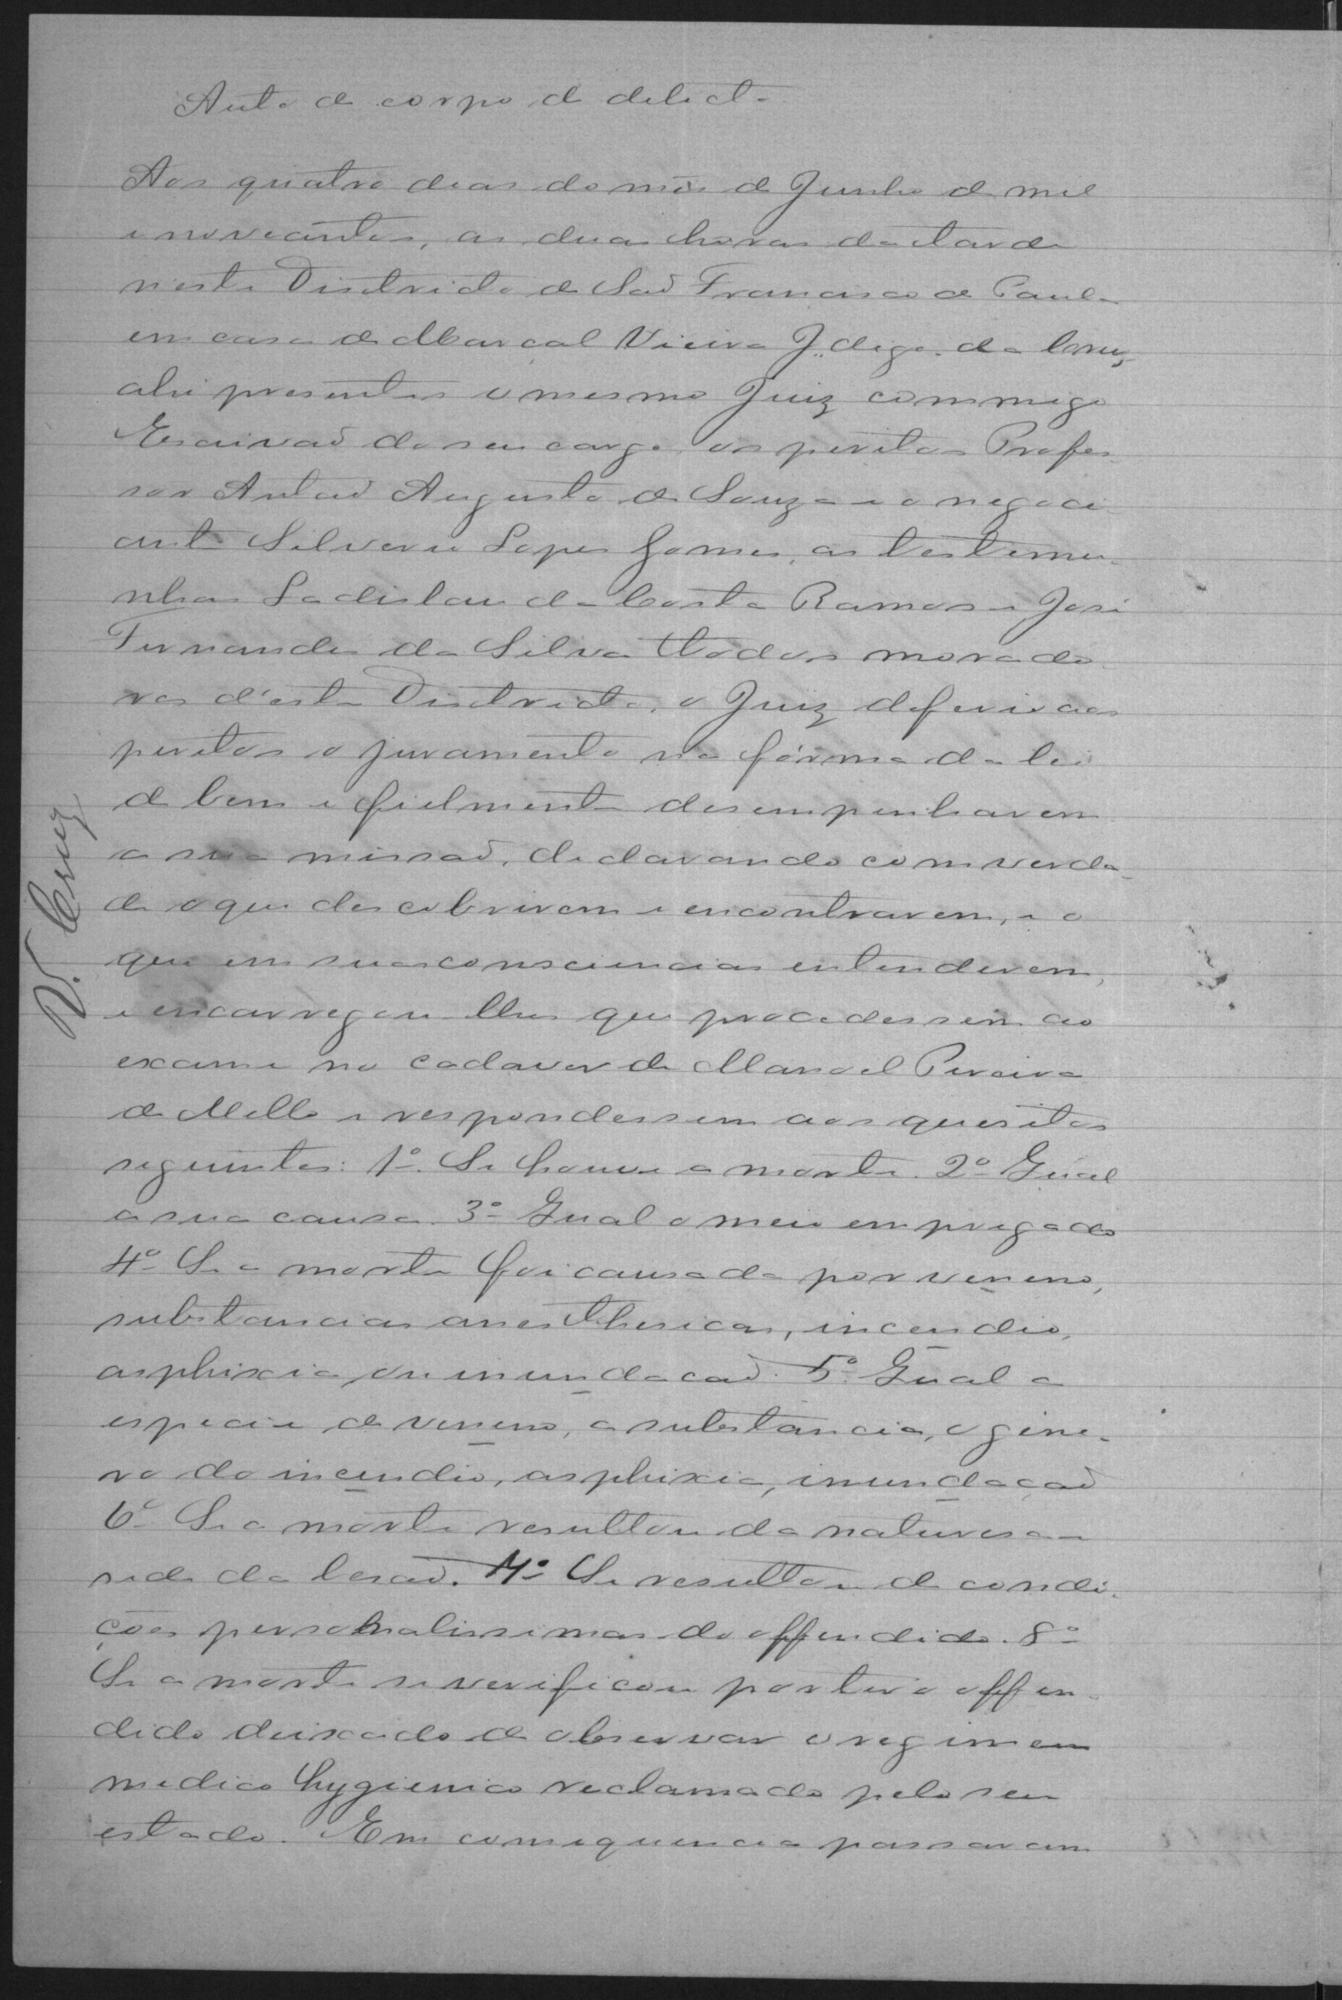 Auto de corpo de delicto
Aos quatro dias do mês de Junho de mil
e novecentos, as duas horas da tarde
neste Districto de Saõ Francisco de Paula
em casa de Marcal Vieira J. digo. da Cruz,
ahi presentes o mesmo Juiz commigo
Escrivaõ do seu cargo, os peritos Profes
sor Antaõ Augusto de Souza e o negoci
ante Silverio Lopes Gomes, as testemu
nhas Ladislau da Costa Ramos e José
Fernandes da Silva todos morado
res d'este Districto, o Juiz deferio aos
peritos o juramento na fórma da lei
de bem e fielmente desempenharem
a sua missaõ, declarando com verda
de o que descobrirem e encontrarem, e o
que em suas consciencias entenderem,
e encarregou lhes que procedessem ao
exame no cadaver de Manoel Pereira
de Mello e respondessem aos quesitos
seguintes: 1º Se houve a morte. 2º Qual
a sua causa. 3º Qual o meio empregado
4º Se a morte foi causada por veneno,
substancias anesthesicas, incendio,
asphixia ou inundacaõ. 5º Qual a
especie de veneno, a substancia, o gene
ro do incendio, asphixia, inundaçaõ
6º Se a morte resultou da naturesa e
sede da lesaõ. 7º Se resultou de condi
ções personalissimas do offendido. 8º
Se a morte se verificou por ter o offen
dido deixado de observar o regimem
medico hygienico reclamado pelo seu
estado. Em consequencia passaram
V. Cruz